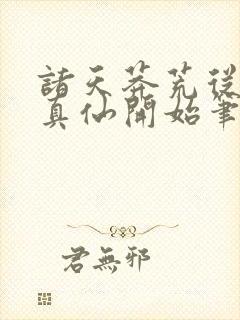 諸天莽荒從
真仙開始筆
君無邪